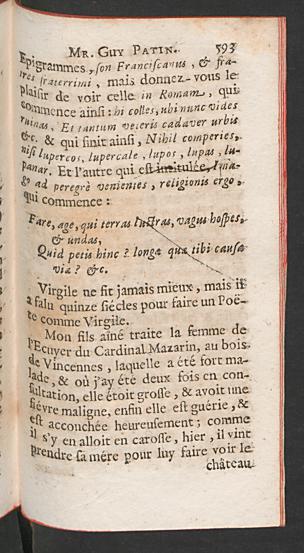 MR. GUY PATIN. 593
Epigrammes, son Franciscanus, & fra-
tres fraterrimi, mais donnez-vous le
plaisir de voir celle in Romam, qui
commence ainsi: hi colles, ubi nunc vides
ruinas, Et tantum veteris cadaver urbis
&c. & qui finit ainsi, Nihil comperies,
nisi lupercos, lupercale, lupos, lupas, lu-
panar. Et l'autre qui est intitulée, Ima-
go ad peregrè venientes, religionis ergo,
qui commence:
Fare, age, qui terras lustras, vagus hospes,
& undas,
Quid petis hinc? longæ quæ tibi causa
via? &c.
Virgile ne fit jamais mieux, mais il
a falu quinze siécles pour faire un Poë-
te comme Virgile.
Mon fils aîné traite la femme de
l'Ecuyer du Cardinal Mazarin, au bois
de Vincennes, laquelle a été fort ma-
lade, & où j'ay été deux fois en con-
sultation, elle étoit grosse, & avoit une
fiévre maligne, enfin elle est guérie, &
est accouchée heureusement; comme
il s'y en alloit en carosse, hier, il vint
prendre sa mére pour luy faire voir le
château